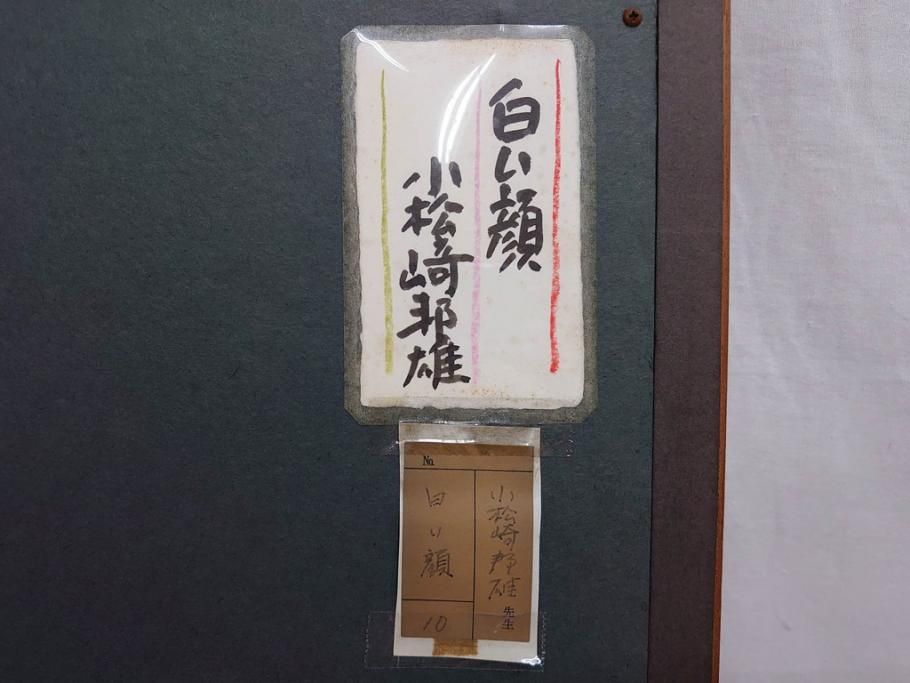 白い顔
小松崎邦雄
小松崎邦雄先生
No.
白い顔
10